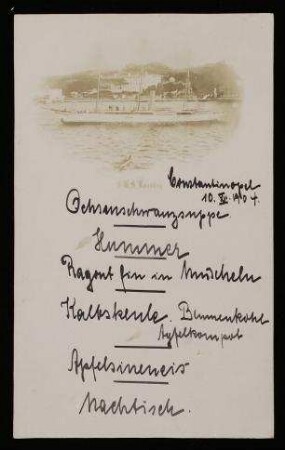 Constantinopel
10. XII. 1904.
Ochsenschwanzsuppe
Hummer
Ragout fin in Muscheln
Kalbskeule. Blumenkohl
Apfelkompot
Apfelsineneis
Nachtisch.